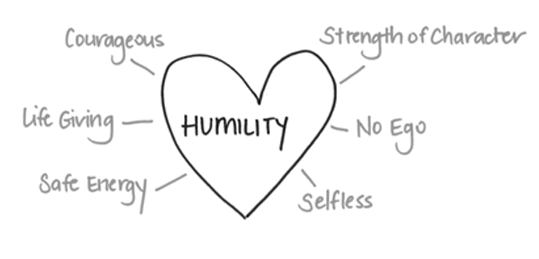 Courageous
Strength of Character
Life Giving
HUMILITY
No Ego
Safe Energy
Selfless